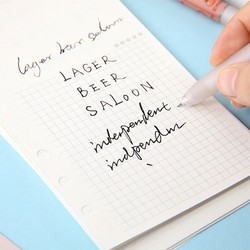 lager beer saloon
LAGER
BEER
SALOON
interpendent
indpendm